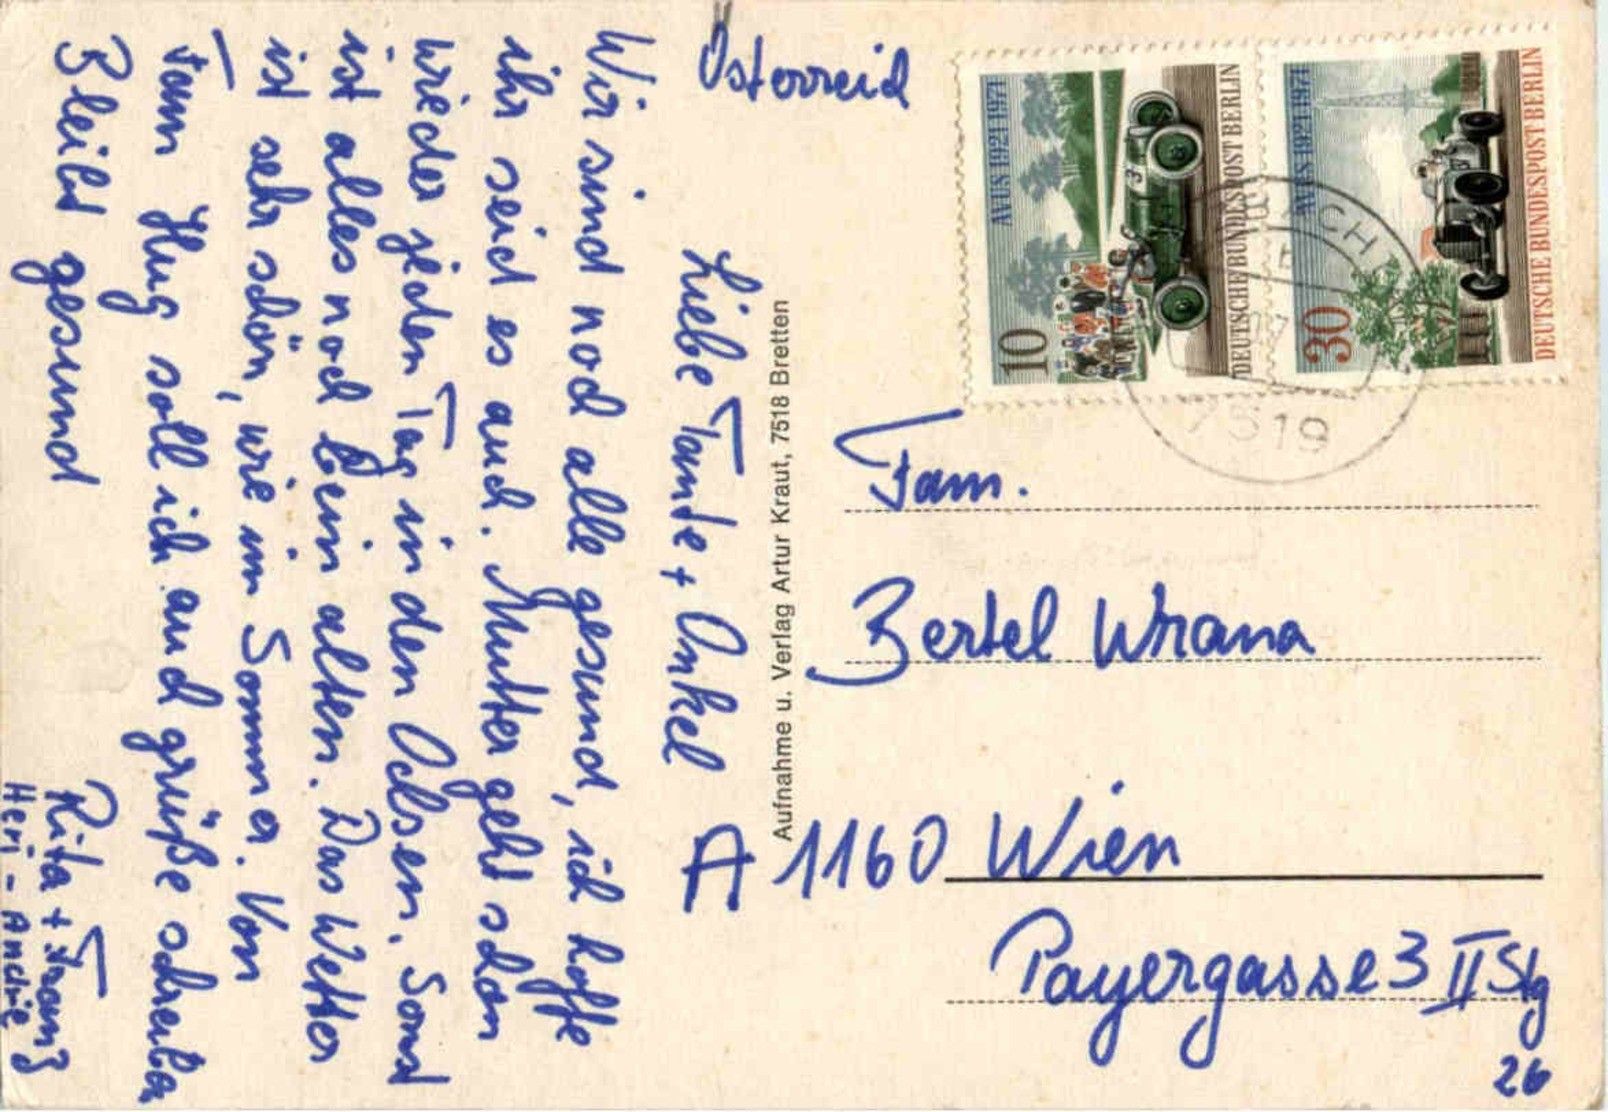 Österreich
Liebe Tante + Onkel
Wir sind noch alle gesund, ich hoffe
ihr seid es auch. Mutter geht schon
wieder jeden Tag in den Ochsen. Sonst
ist alles noch beim alten. Das Wetter
ist sehr schön, wie im Sommer. Von
Fam Hug soll ich auch grüße schreiben
Bleibt gesund
Rita + Franz
Heri - Andrie
Aufnahme u. Verlag Artur Kraut, 7518 Bretten
AVUS 1921-1971
10
DEUTSCHE BUNDESPOST BERLIN
AVUS 1921-1971
30
DEUTSCHE BUNDESPOST BERLIN
7519
Fam.
Bertel Wrana
A 1160 Wien
Payergasse 3 II Stg
26